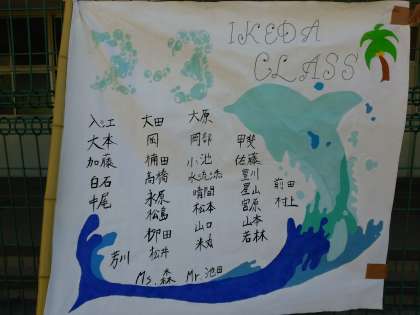 3-3
IKEDA
CLASS
入江 太田 大原
大本 岡 岡部 甲斐
加藤 桶田 小池 佐藤
白石 高橋 水流添 豊川 前田
中尾 永原 晴間 星山 村上
松島 松本 宮原
柳田 山口 山本
芳川 松井 若林
Ms. 森 Mr. 池田